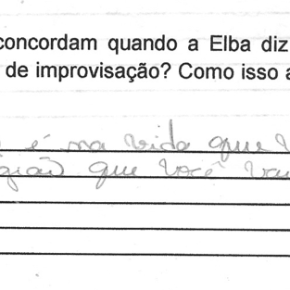 concordam quando a Elba diz
de improvisação? Como isso a
é na vida que
que você vai